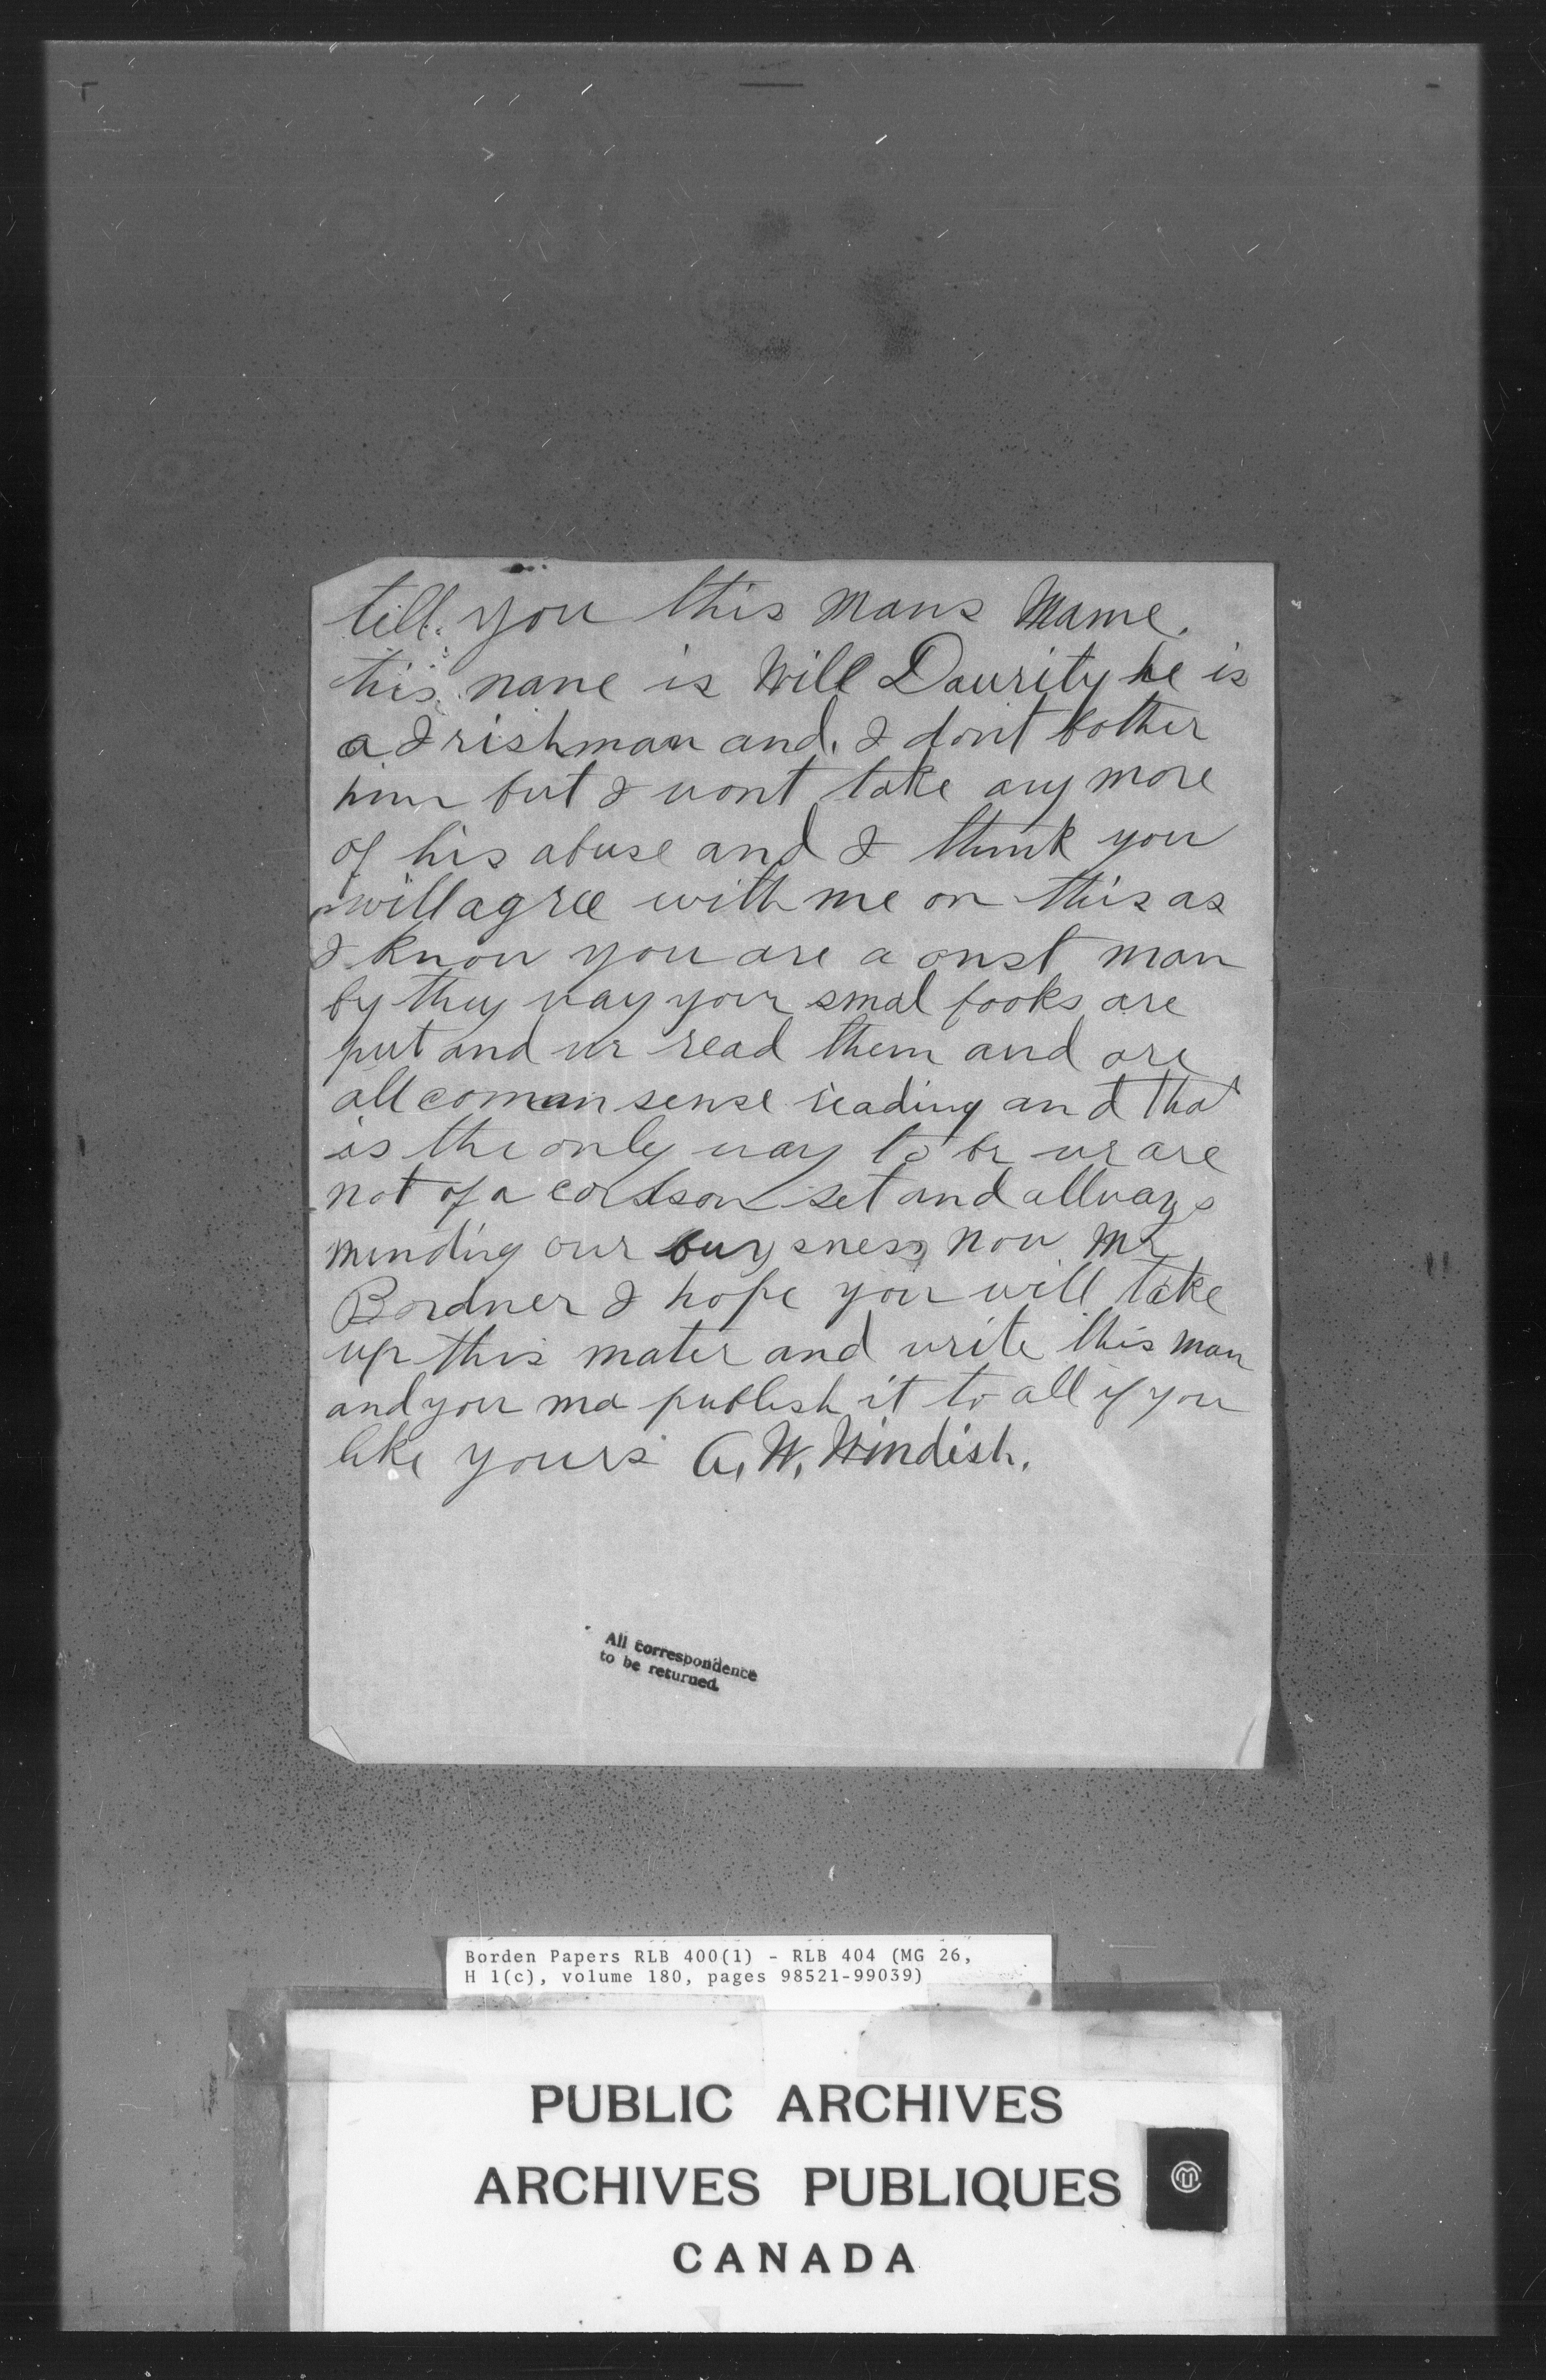 tell you this mans Mame.
his name is Will Daurity he is
a Irishman and. I dont bother
him but I wont take any more
of his abuse and I think you
will agree with me on this as
I know you are a onst man
by they way your smal books are
put and we read them and are
all coman sense reading and that
is the only way to be we are
not of a set and allways
minding our buysness now Mr
Bordner I hope you will take
up this mater and write this man
and you ma publish it to all if you
like yours G. W. Windish.
All correspondence
to be returned.
Borden Papers RLB 400(1) - RLB 404 (MG 26,
H 1(c), volume 180, pages 98521-99039)
PUBLIC ARCHIVES
ARCHIVES PUBLIQUES
CANADA